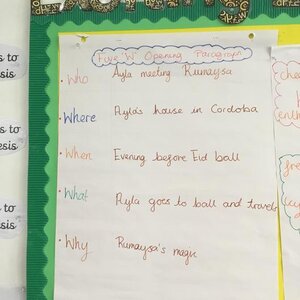 Five W Opening Paragraph
• Who Ayla meeting Rumaysa
• Where Ayla's house in Cordoba
• When Evening before Eid ball
• What Ayla goes to ball and travels
• Why Rumaysa's magic
s to
esis
s to
esis
s to
esis